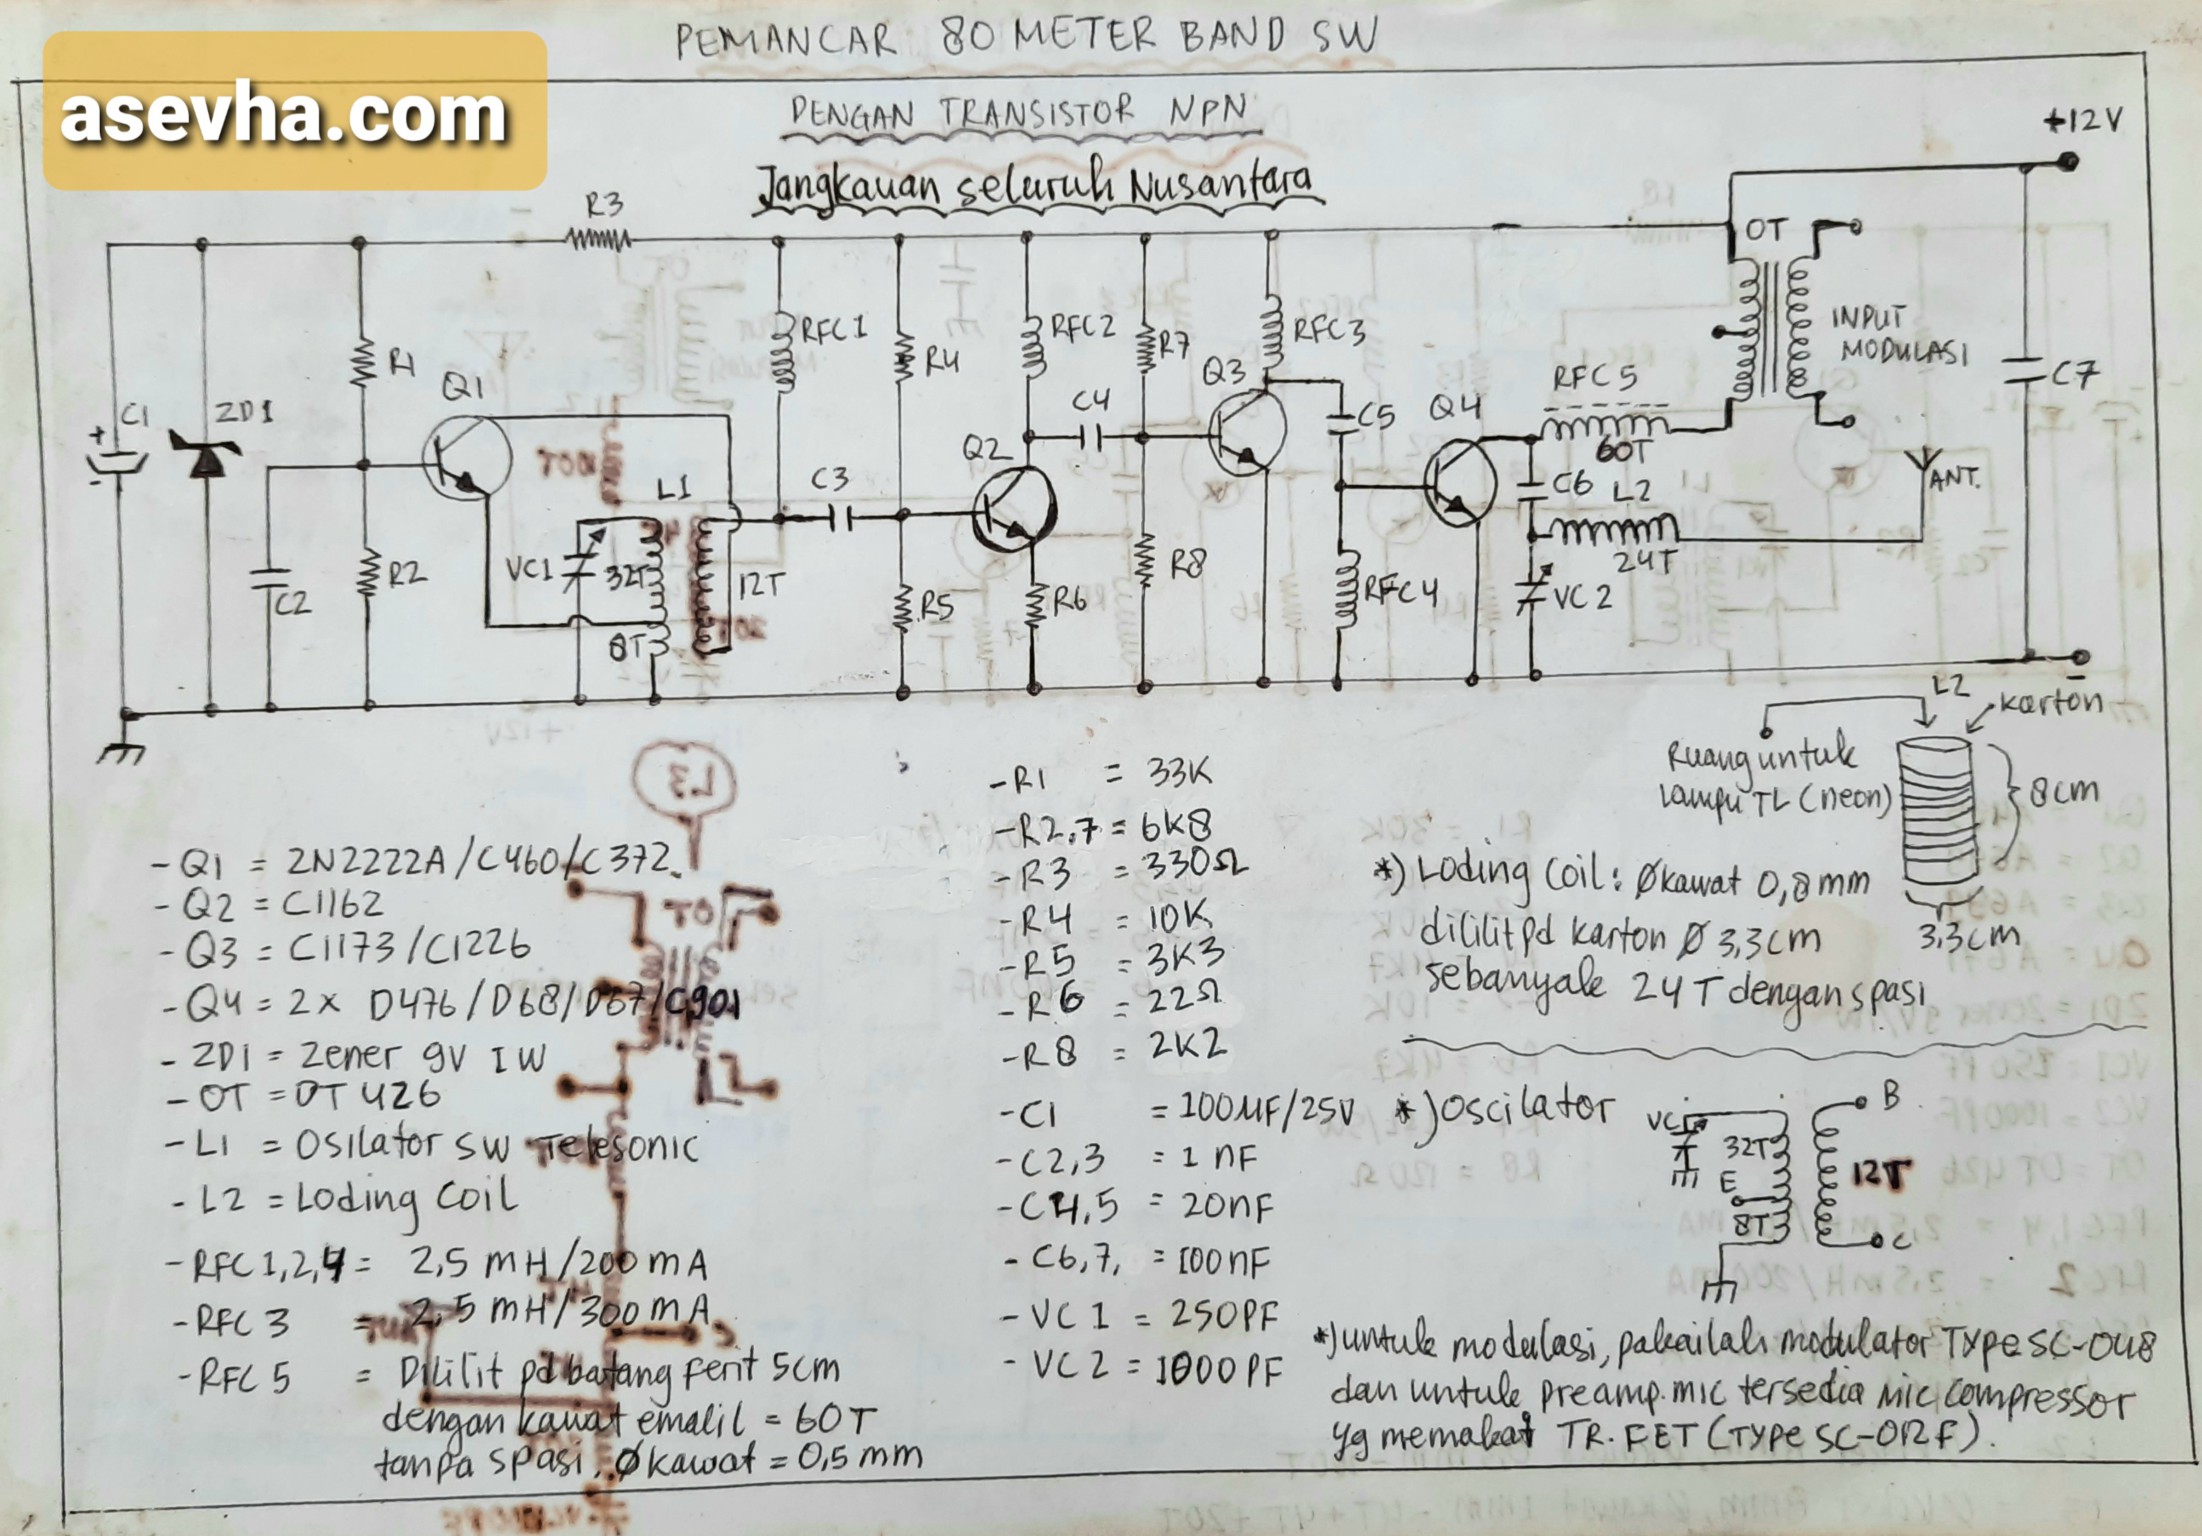 PEMANCAR 80 METER BAND SW
asevha.com
DENGAN TRANSISTOR NPN
Jangkauan seluruh Nusantara
+12V
R3
OT
INPUT
MODULASI
C7
RFC1
R4
RFC2
R7
RFC3
R1
Q1
Q3
C4
C5
Q4
RFC 5
60T
C1
+
-
ZD1
Q2
C3
L1
C6
L2
24T
ANT.
VC1
32T
12T
8T
C2
R2
R5
R6
R8
RFC4
VC2
-
L2
karton
Ruang untuk
lampu TL (neon)
8cm
3,3cm
L3
OT
-Q1 = 2N2222A/C460/C372
-Q2 = C1162
-Q3 = C1173/C1226
-Q4 = 2x D476/D68/D67/C901
-ZD1 = Zener 9V 1W
-OT = OT 426
-L1 = Osilator SW Telesonic
-L2 = Loding Coil
-RFC 1,2,4 = 2,5 mH/200 mA
-RFC 3 = 2,5 mH/300 mA
-RFC 5 = Dililit pd batang ferit 5cm
dengan kawat emalil = 60T
tanpa spasi, Økawat = 0,5 mm
-R1 = 33K
-R2,7 = 6K8
-R3 = 330Ω
-R4 = 10K
-R5 = 3K3
-R6 = 22Ω
-R8 = 2K2
-C1 = 100MF/25V
-C2,3 = 1 nF
-C4,5 = 20nF
-C6,7, = 100nF
-VC 1 = 250PF
-VC 2 = 1000PF
*) Loding Coil: Økawat 0,8mm
dililit pd karton Ø 3,3cm
sebanyak 24T dengan spasi
*) Oscilator
VC1
32T
E
8T
B
12T
C
*) untuk modulasi, pakailah modulator Type SC-048
dan untuk preamp.mic tersedia Mic compressor
yg memakai TR. FET (Type SC-012F).